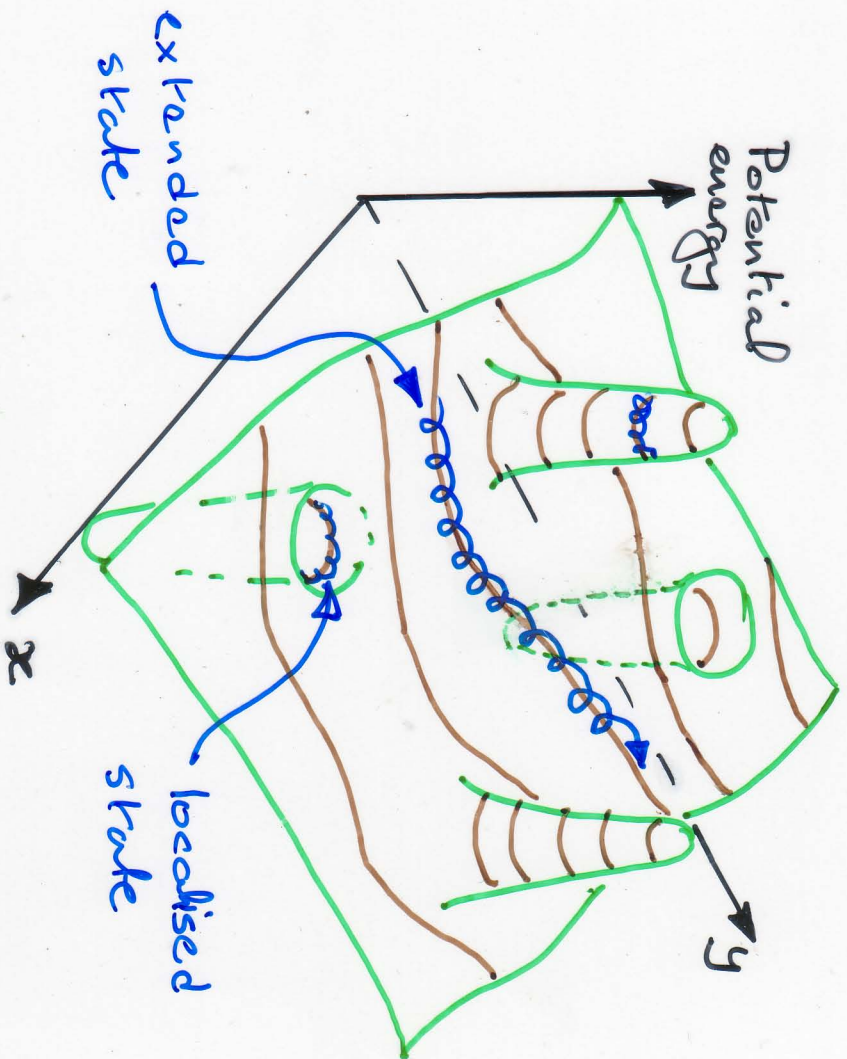 Potential
energy
extended
state
x
y
localised
state